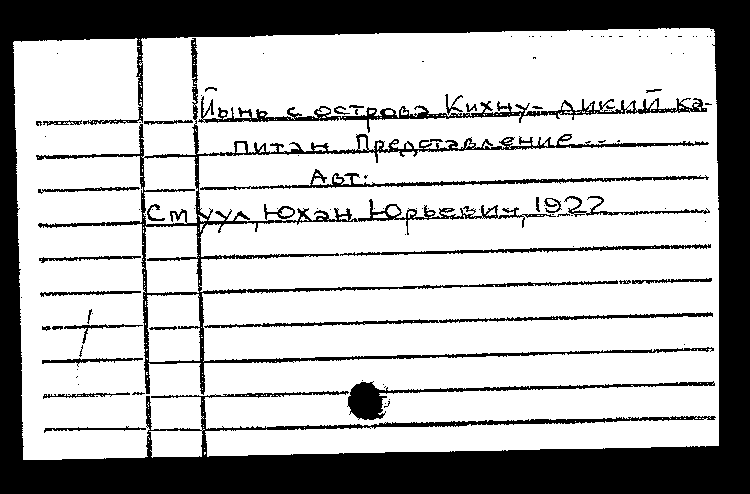 Йынь с острова Кихну- дикий ка-
питан. Представление...
Авт:
Смуул, Юхан Юрьевич, 1922